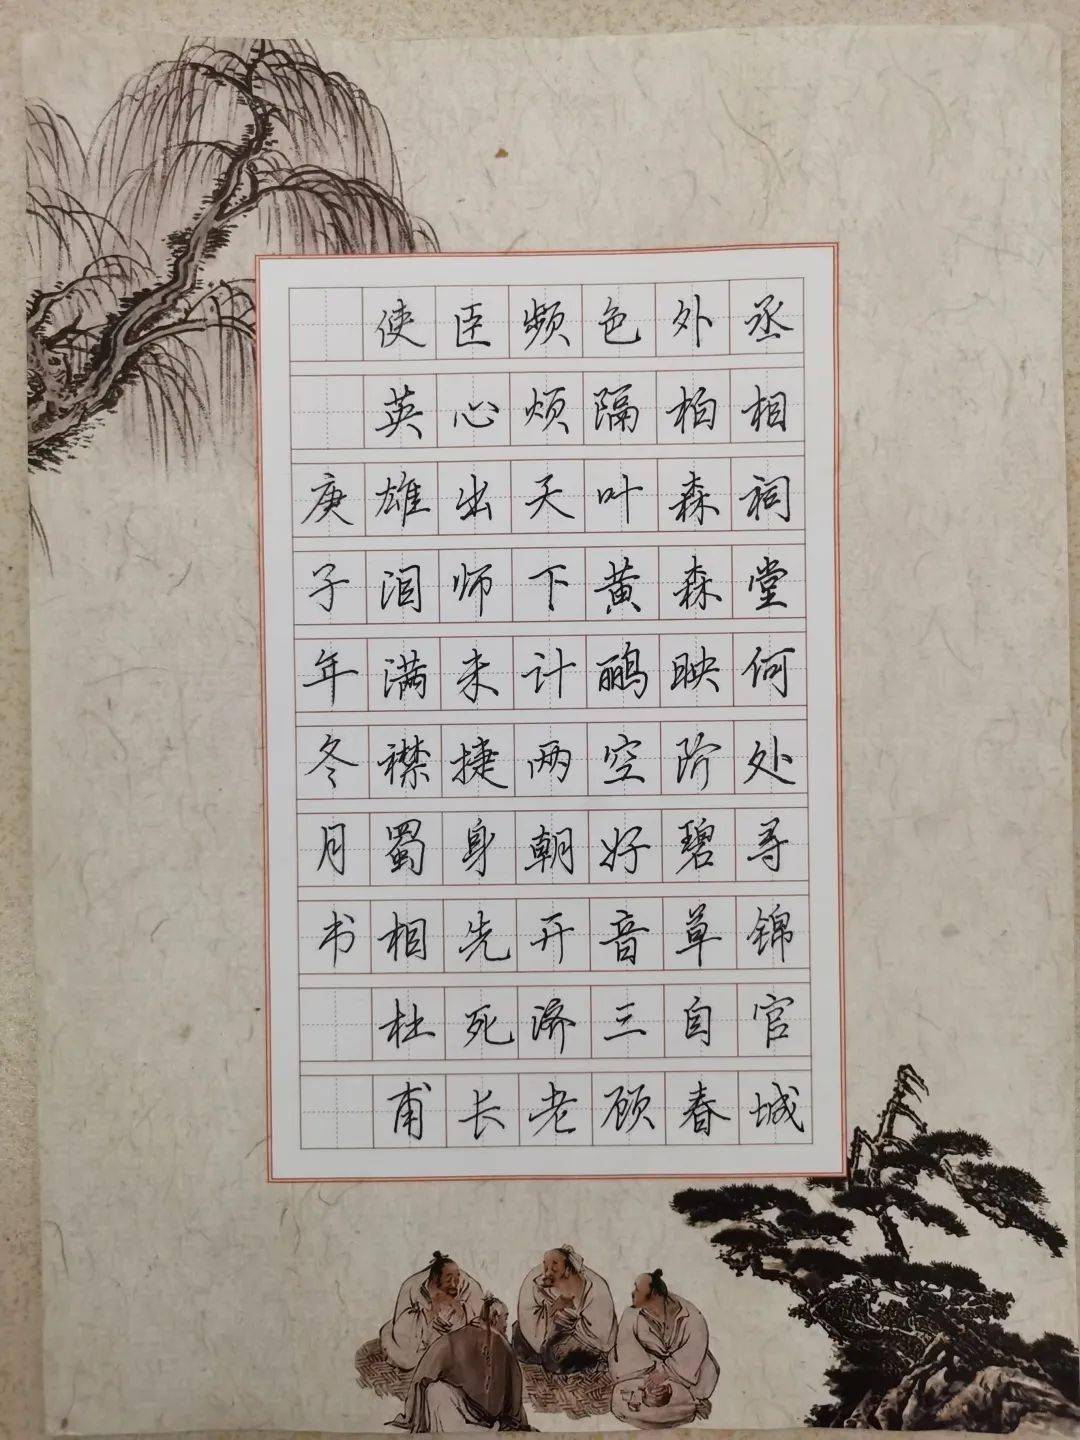 丞相祠堂何处寻锦官城
外柏森森映阶碧草自春
色隔叶黄鹂空好音三顾
频烦天下计两朝开济老
臣心出师未捷身先死长
使英雄泪满襟蜀相杜甫
庚子年冬月书